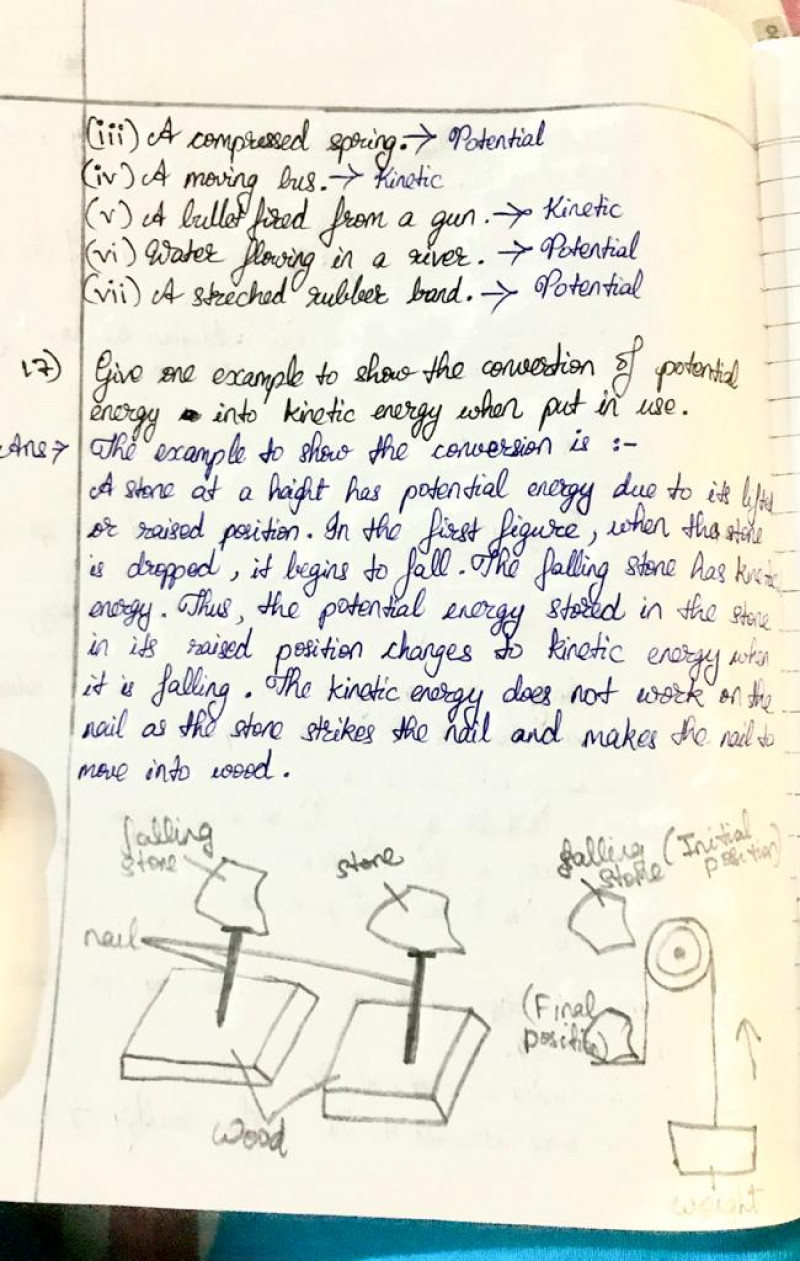 (iii) A compressed spring. → Potential
(iv) A moving bus. → Kinetic
(v) A bullet fired from a gun. → Kinetic
(vi) Water flowing in a river. → Potential
(vii) A streched rubber band. → Potential
17) Give one example to show the convertion of potential
energy into kinetic energy when put in use.
Ans→ The example to show the conversion is :-
A stone at a height has potential energy due to its lifted
or raised position. In the first figure, when the stone
is dropped, it begins to fall. The falling stone has kinetic
energy. Thus, the potential energy stored in the stone
in its raised position changes to kinetic energy when
it is falling. The kinetic energy does not work on the
nail as the stone strikes the nail and makes the nail to
move into woood.
falling
stone
stone
falling
stone
(Initial
position)
nail
(Final
position)
wood
weight